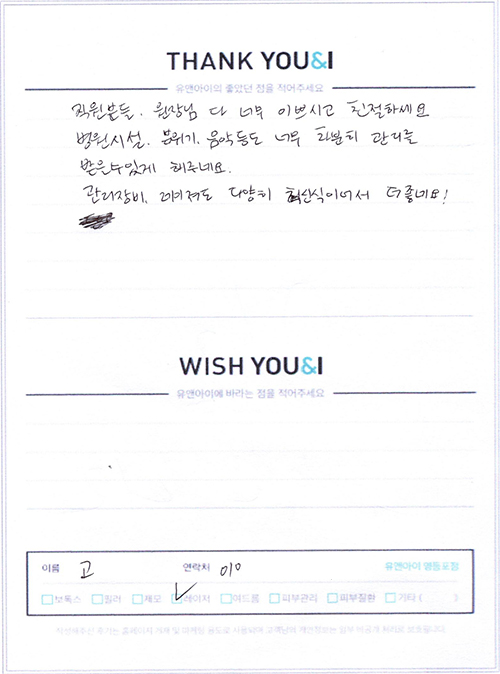 THANK YOU&I
유앤아이의 좋았던 점을 적어주세요
직원분들, 원장님 다 너무 이쁘시고 친절하세요
병원시설, 분위기, 음악등도 너무 차분히 관리를
받을수있게 해주네요.
관리장비, 레이져도 다양히 최신식이어서 더 좋네요!
WISH YOU&I
유앤아이에 바라는 점을 적어주세요
이름 고 연락처 010 유앤아이 영등포점
보톡스 필러 제모 레이저 여드름 피부관리 피부질환 기타 ( )
작성해주신 후기는 홈페이지 게재 및 마케팅 용도로 사용되며 고객님의 개인정보는 일부 비공개 처리로 보호됩니다.